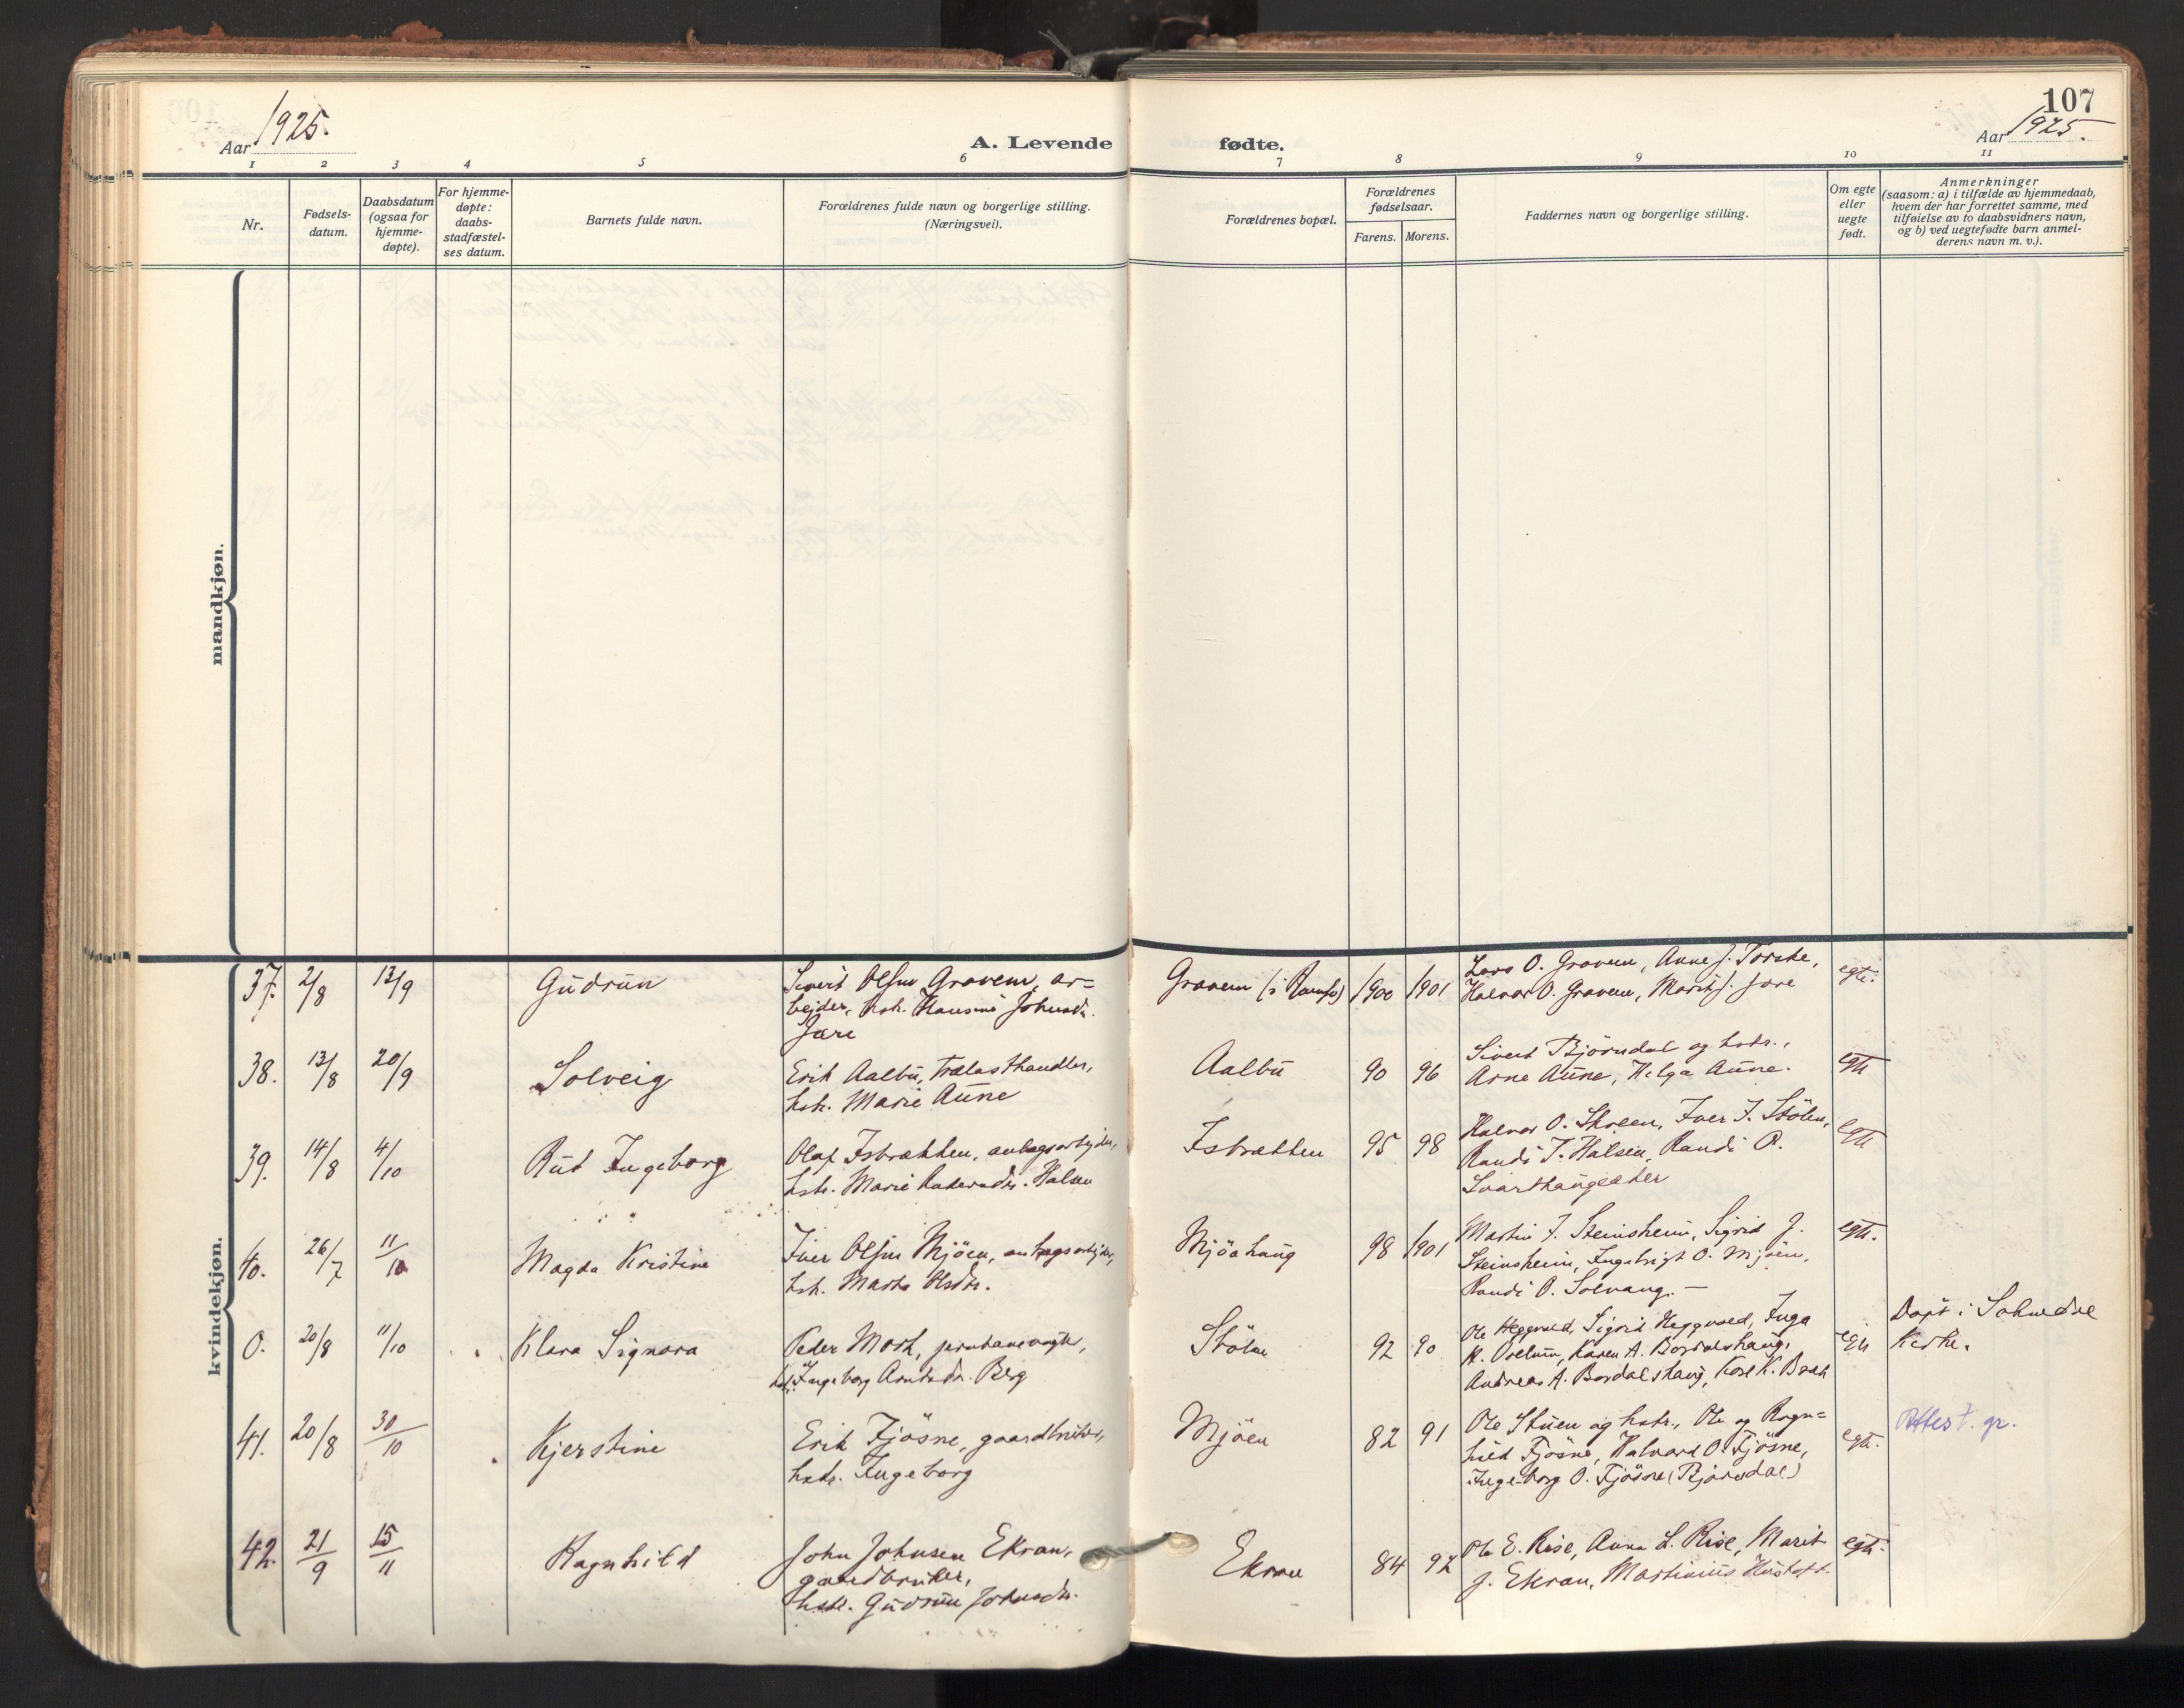 107
Aar 1925.
A. Levende
fødte.
Aar 1925.
1 2 3 4 5 6 7 8 9 10 11
Nr.
Fødsels-
datum.
Daabsdatum
(ogsaa for
hjemme-
døpte).
For hjemme-
døpte:
daabs-
stadfæstel-
ses datum.
Barnets fulde navn.
Forældrenes fulde navn og borgerlige stilling.
(Næringsvei).
Forældrenes bopæl.
Forældrenes
fødselsaar.
Farens. Morens.
Faddernes navn og borgerlige stilling.
Om egte
eller
uegte
født.
Anmerkninger
(saasom: a) i tilfælde av hjemmedaab,
hvem der har forrettet samme, med
tilføielse av to daabsvidners navn,
og b) ved uegtefødte barn anmel-
derens navn m. v.).
mandkjøn.
kvindekjøn.
37. 2/8 13/9 Gudrun
Sivert Olsen Gravem, ar=
beider, hstr. Johnsdr.
Jære
Gravem (i 1900 1901
Lars O. Gravem, Anne J. Torske,
Halvor O. Gravem, Marit J. Jøre
egte.
38. 13/8 20/9 Solveig
Erik Aalbu, trælasthandler,
hstr. Marie Aune
Aalbu 90 96
Sivert Bjørndal og hstr.,
Arne Aune, Helga Aune.
egte
39. 14/8 4/10 Rut Ingeborg
Olaf Isbrækken, anlægsarbeider,
hstr. Marie Halsen
Isbrækken 95 98
Halvor O. Skoeen, Iver I. Stölen,
Randi I. Halsen, Randi O.
Svarthaugsæter
egte
40. 26/7 11/10 Magda Kristine
Iver Olsen Mjöen, anlægsarbeider,
hstr. Marta Olsdtr.
Mjöahaug 98 1901
Martin J. Steinsheim, Sigrid J.
Steinsheim, Ingebrigt O. Mjöen,
Randi O. Solvang. —
egte.
0. 20/8 11/10 Klara Signora
Peder Mosk, jernbanevogter,
hstr. Ingeborg Arntsdr. Berg
Stölen 92 90
Ole Heggvold, Sigrid Heggvold, Inga
K. Karen A. Bordalshaug,
Andreas A. Bordalshaug, Kåre K.
egte
Døpt i Soknedal
Kirke.
41. 20/8 30/10 Kjerstine
Erik Fjösne, gaardbruker,
hstr. Ingeborg
Mjöen 82 91
Ole Stuen og hstr., Ole og Ragn=
hild Fjösne, Halvard O. Fjösne,
Ingeborg O. Fjösne (Bjørndal)
egte.
Attest. gr.
42. 21/9 15/11 Ragnhild
John Johnsen Ekran,
gaardbruker,
hstr. Gudrun Johnsdr.
Ekran 84 92
Ole E. Rise, Anne L. Rise, Marit
J. Ekran, Martinius
egte.